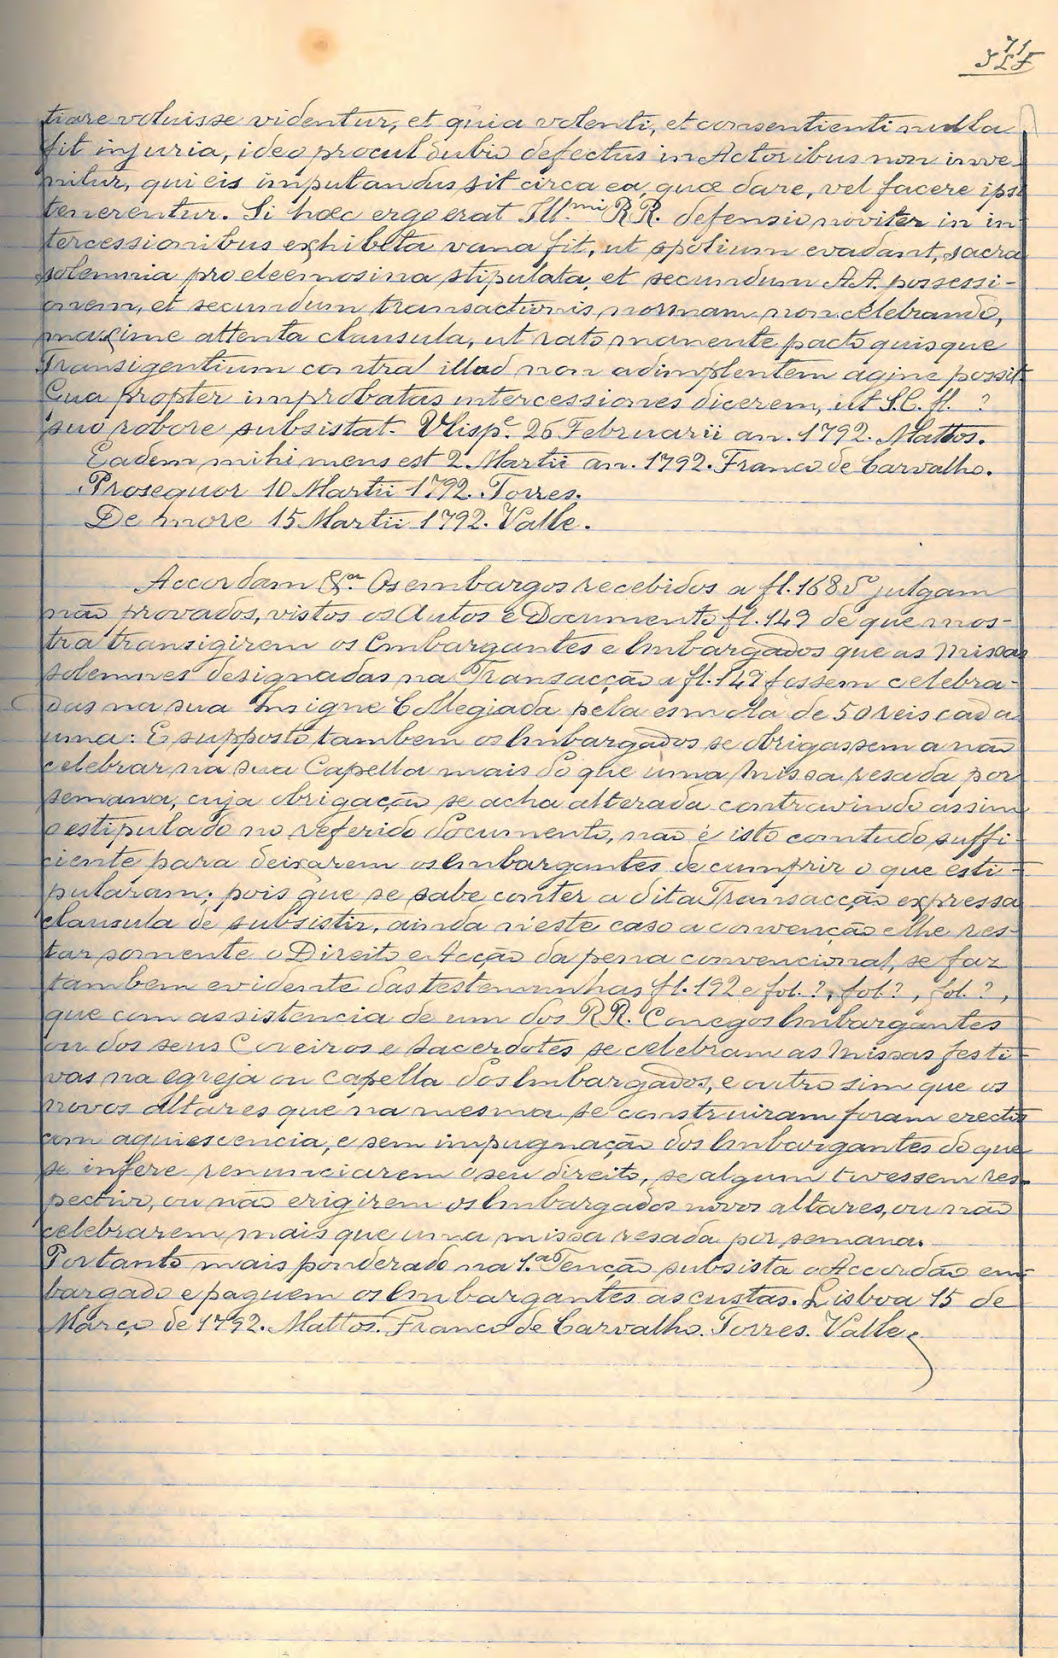 71
tiare voluisse videntur, et quia volenti, et consentienti nulla
fit injuria, ideo procul dubio defectus in Actoribus non inve-
nitur, qui eis imputandus sit circa ea, quæ dare, vel facere ipsi
tenerentur. Si hæc ergo erat Ill.mi RR. defensio noviter in in
tercessionibus exhibita vana fit, ut spolium evadant, sacra
solemnia pro eleemosina stipulata, et secundum AA. possessi-
onem, et secundum transactionis normam non celebrando,
maxime attenta clausula, ut rato manente pacto quisque
Transigentium contra illud non adimplentem agine possit
Qua propter improbatas intercessiones dicerem, ut S.C. fl. ?
suo robore subsistat. Vlisp.e 26 Februarii an. 1792. Mattos.
Eadem mihi mens est 2. Martii an. 1792. Franco de Carvalho.
Prosequor 10 Martii 1792. Torres.
De more 15 Martii 1792. Valle.
Accordam &.a Os embargos recebidos a fl. 168 julgam
não provados, vistos os Autos e Documento fl. 149 de que mos-
tra transigirem os Embargantes e Embargados que as Missas
solemnes designadas na Transacção a fl. 149 fossem celebra-
das na sua Insigne Collegiada pela esmola de 50 reis cada
uma: E supposto tambem os Embargados se obrigassem a não
celebrar na sua Capella mais do que uma Missa resada por
semana, cuja obrigação se acha alterada contravindo assim
o estipulado no referido Documento, não é isto comtudo suffi-
ciente para deixarem os Embargantes de cumprir o que esti-
pularam; pois que se sabe conter a dita Transacção expressa
clausula de subsistir, ainda n'este caso a convenção e lhe res-
tar somente o Direito e Acção da pena convencional, se faz
tambem evidente das testemunhas fl. 192 e fol. ?, fol ?, fol. ?,
que com assistencia de um dos RR. Conegos Embargantes
ou dos seus Coreiros e Sacerdotes se celebram as Missas festi-
vas na egreja ou capella dos Embargados, e outro sim que os
novos altares que na mesma se construiram foram erectos
com aquiescencia, e sem impugnação dos Embargantes do que
se infere renunciarem o seu direito, se algum tivessem res-
pectivo, ou não erigirem os Embargados novos altares, ou não
celebrarem mais que uma missa resada por semana.
Portanto mais ponderado na 1.a Tenção subsista o Accordão em-
bargado e paguem os Embargantes as custas. Lisboa 15 de
Março de 1792. Mattos. Franco de Carvalho. Torres. Valle